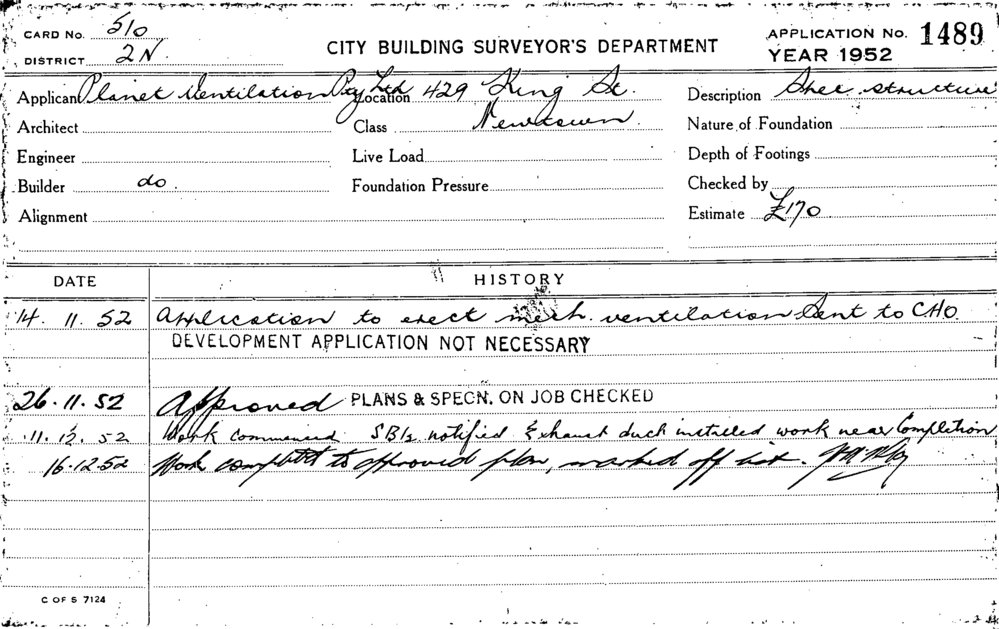 CARD No. 510
DISTRICT 2N
CITY BUILDING SURVEYOR'S DEPARTMENT
APPLICATION No. 1489
YEAR 1952
Applicant Planet Ventilation Pty Ltd Location 429 King St. Description Spec. structure
Architect Class Newtown. Nature of Foundation
Engineer Live Load Depth of Footings
Builder do. Foundation Pressure Checked by
Alignment Estimate £170
DATE HISTORY
14. 11. 52 Application to erect mech. ventilation Sent to CHO
DEVELOPMENT APPLICATION NOT NECESSARY
26. 11. 52 Approved PLANS & SPECN. ON JOB CHECKED
11. 12. 52 Work commenced notified Exhaust duct installed work near Completion
16.12.52 Work completed to approved plan, marked off list.
C OF S 7124